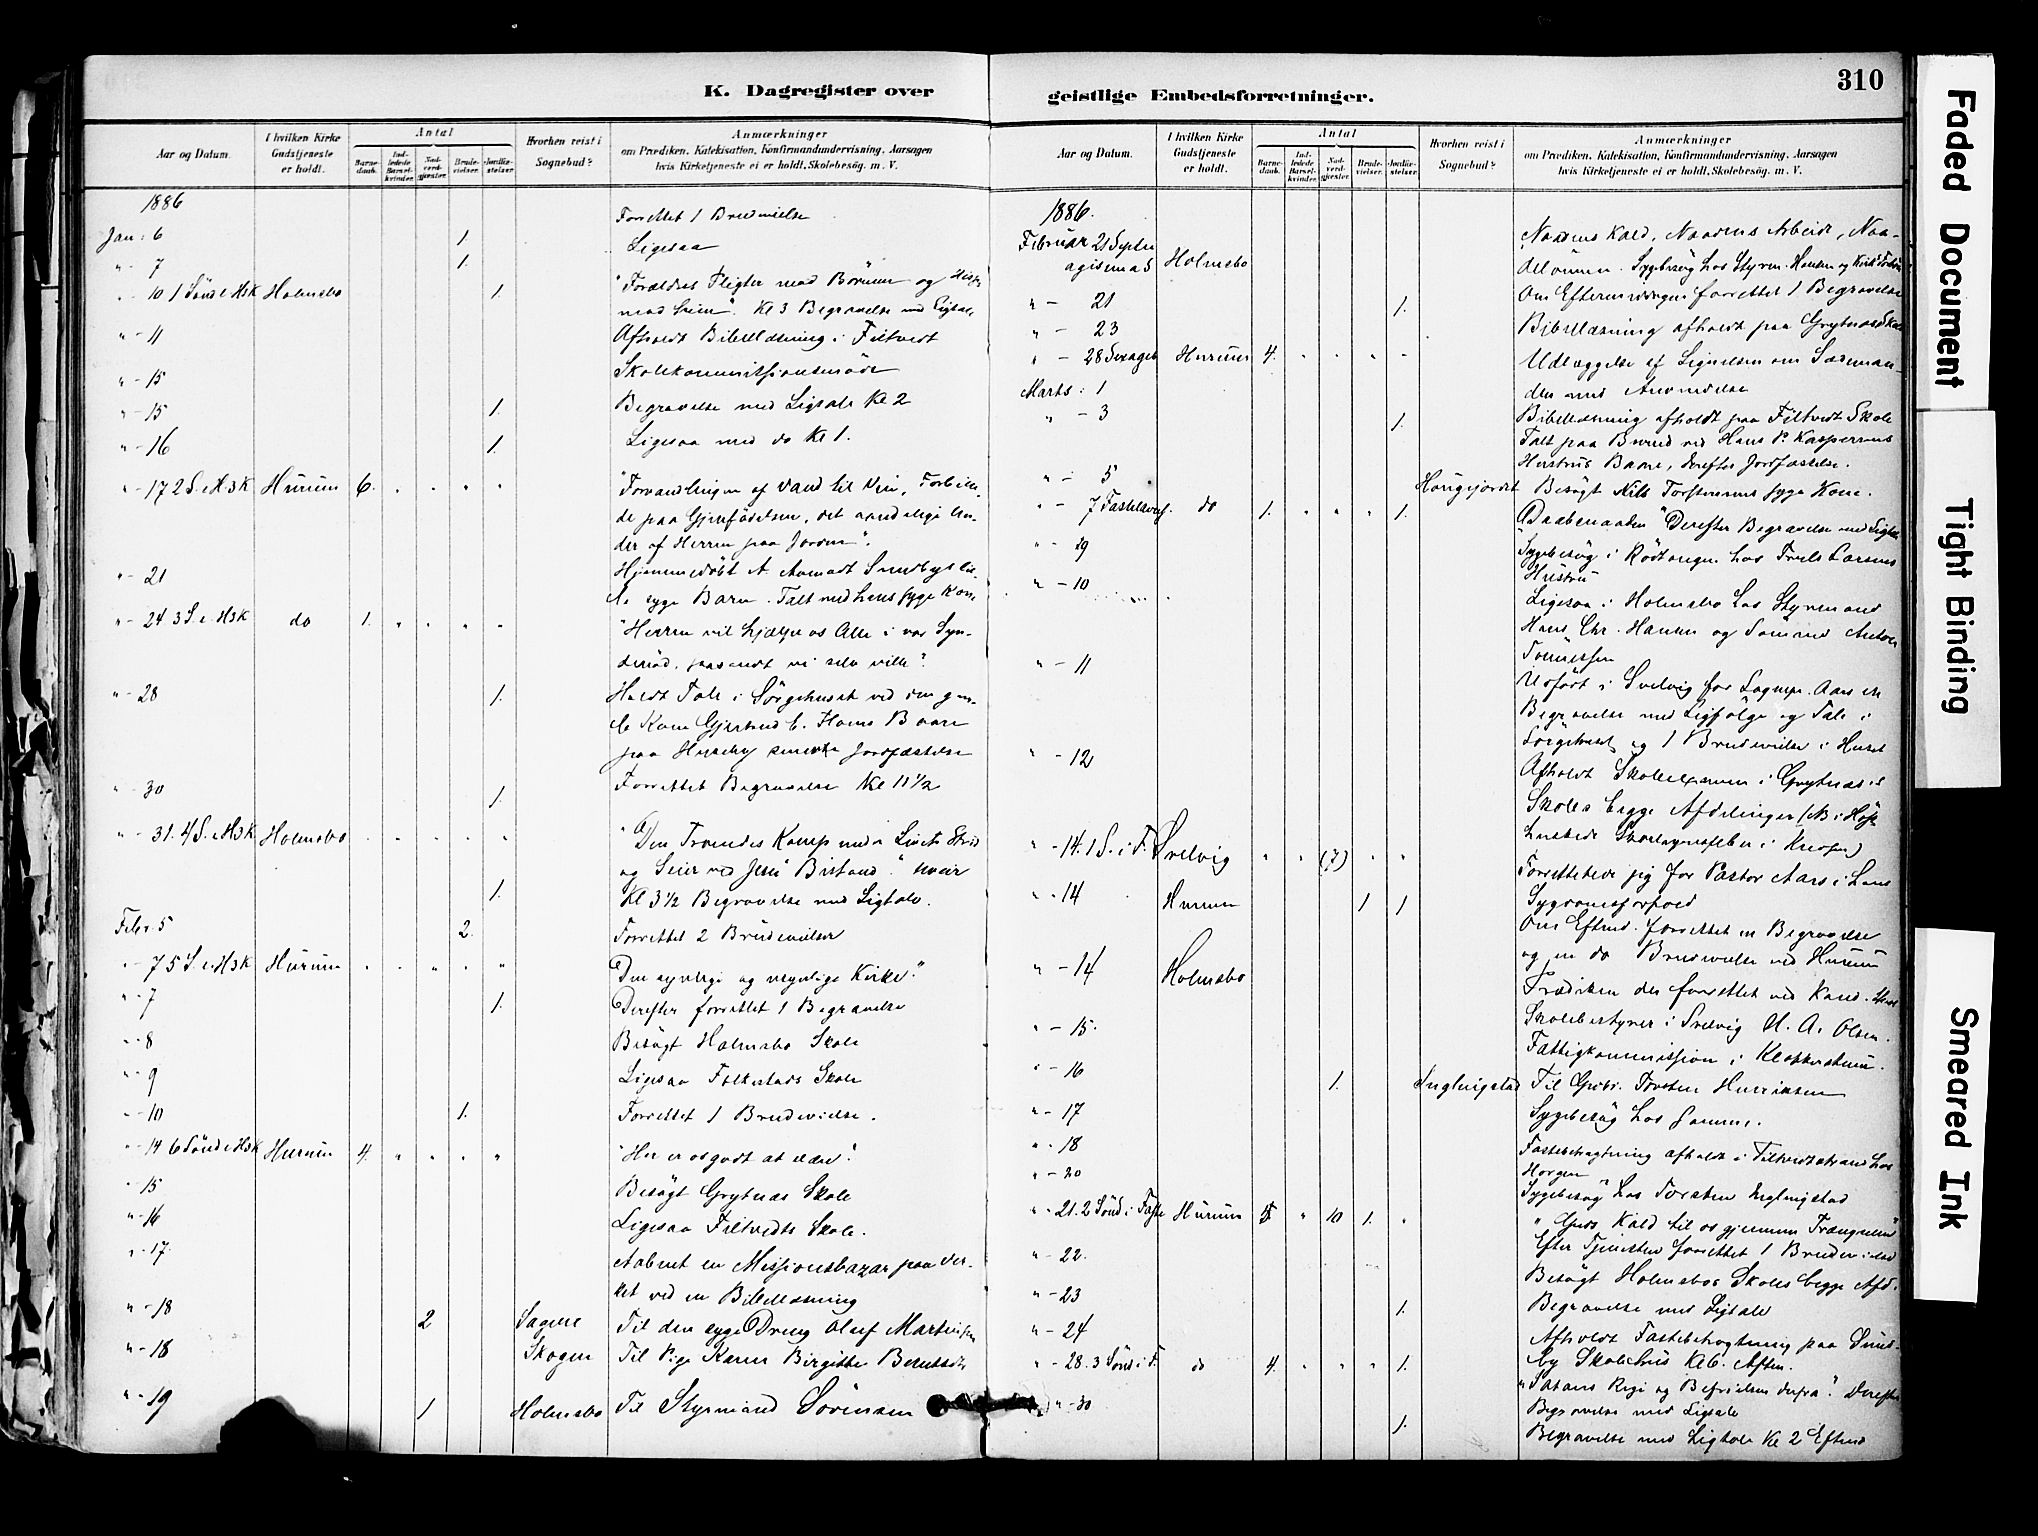 310
K. Dagregister over
geistlige Embedsforretninger.
Aar og Datum.
I hvilken Kirke
Gudstjeneste
er holdt.
Antal
Barne-
daab.
Ind-
ledede
Barsel-
kvinder.
Nad-
verd-
gjester.
Brude-
vielser.
Jordfæ-
stelser.
Hvorhen reist i
Sognebud?
Anmærkninger
om Prædiken, Katekisation, Konfirmandundervisning, Aarsagen
hvis Kirketjeneste ei er holdt, Skolebesøg. m. V.
1886
Forrettet 1 Brudevielse
Jan: 6 1.
Ligesaa
" 7 1.
"Forældres Pligter mod Börnene og
" 10 1 Sönd e H3K Holmsbo 1.
Kl 3 Begravelse med Ligtale
" 11 Afholdt Bibellæsning i Filtvedt
" 15 Skolekommissionsmöde
" 15 1. Begravelse med Ligtale Kl 2
" 16 1. Ligesaa med do Kl 1.
" 17 2 S. e H3K Hurum 6. " " " "
"Forvandlingen af Vand til Vin, Forbille-
de paa Gjenfödelsen, det aandelige Un-
der af Herren paa Jorden".
" 21 Hjemmedöbt A. Smedbys lil-
le syge Barn. Talt med hans syge Kone
" 24 3 S. e H3K do 1. " " " "
"Herren vil hjælpe os Alle i vor Syn-
denöd, saasandt vi selv ville".
" 28 1. Holdt Tale i Sörgehuset ved den gam-
le Kone Gjertrud C. Hans Baare
paa Huseby Jordfæstelse
" 30 1. Forrettet Begravelse Kl 11 1/2
" 31. 4 S. e H3K Holmsbo " " " "
"Den Troendes Kamp under Livets Strid
og Seier ved Jesu Bistand."
1. Kl 3 1/2 Begravelse med Ligtale.
Febr. 5 2. Forrettet 2 Brudevielser
" 7 5 S. e H3K Hurum " " " "
"Den synlige og usynlige Kirke."
" 7 1. Derefter forrettet 1 Begravelse
" 8 Besögt Holmsbo Skole
" 9 Ligesaa Folkestads Skole
" 10 1. Forrettet 1 Brudevielse.
" 14 6 Sönd e H3K Hurum 4. " " " "
"Her er os godt at være".
" 15 Besögt Grytnæs Skole
" 16 Ligesaa Filtvedts Skole.
" 17. Aabnet en Missionsbazar paa Ver-
ket ved en Bibellæsning
" 18 2 Sagene Til den syge Dreng Oluf Martinsen
" 18 Skogen Til Pige Karen Birgitte Berntsdtr
" 19 1 Holmsbo Til Styrmand Sörensen
Aar og Datum.
I hvilken Kirke
Gudstjeneste
er holdt.
Antal
Barne-
daab.
Ind-
ledede
Barsel-
kvinder.
Nad-
verd-
gjester.
Brude-
vielser.
Jordfæ-
stelser.
Hvorhen reist i
Sognebud?
Anmærkninger
om Prædiken, Katekisation, Konfirmandundervisning, Aarsagen
hvis Kirketjeneste ei er holdt, Skolebesøg. m. V.
1886.
Februar 21 Septu-
agisimas Holmsbo
Naadens Kald, Naadens Arbeide, Naa-
delönnen. Sygebesög hos Styrm. Hansen og
" - 21 1. Om Eftermiddagen forrettet 1 Begravelse
" - 23 Bibellæsning afholdt paa Grytnæs Skole
" - 28 Sexages Hurum 4. " " " "
Udlæggelse af Lignelsen om Sædeman-
den med Anvendelse
Marts: 1
Bibellæsning afholdt paa Filtvedt Skole
" - 3 1. Talt paa Bærud ved Hans P. Kaspersens
Hustrus Baare, derefter Jordfæstelse.
" - 5 Haugejordet Besögt Nils Torstensens syge Kone.
" - 7 Fastelavns. do 1. " " " 1.
"Daabsnaaden" Derefter Begravelse med Ligtale
" - 9 Sygebesög i Rödtangen hos Truls Larsens
Hustru
" - 10 Ligesaa i Holmsbo hos Styrmand
Hans Chr. Hansen og Sömand Anton
" - 11
Udfört i Svelvig for Sognepr. Aars en
Begravelse med Ligfölge og Tale i
Sörgehuset og 1 Brudevielse i Huset
" - 12 Afholdt Skoleexamen i Grytnæs
Skoles begge Afdelinger
" - 14. 1 S. i F. Svelvig " " (7) " "
Forrettede jeg for Pastor Aars i hans
" - 14 Hurum 1 1
Om Efterm. forrettet en Begravelse
og en do Brudevielse ved Hurum
" - 14 Holmsbo
Prædiken der forrettet ved Kand.
Skolebestyrer i Svelvig H. A. Olsen.
" - 15. Fattigkommission i Klokkerstuen.
" - 16 1. Inglingstad Til Gbr. Torsten Henriksen
" - 17 Sygebesög hos samme.
" - 18 Fastebetragtning afholdt i Filtvedtstrand hos
Horgen
" - 20 Sygebesög hos Torsten Inglingstad
" - 21. 2 Sönd i Faste Hurum 5 " 10 1. "
"Guds Kald til os gjennem Trængselen"
Efter Tjenesten forrettet 1 Brudevielse
" - 22. Besögt Holmsbos Skoles begge Afd.
" - 23 1. Begravelse med Ligtale
" - 24 Afholdt Fastebetragtning paa Smed-
by Skolehus Kl 6. Aften.
" - 28. 3 Sönd i F. do 4. " " " 1.
"Satans Rige og Befrielsen derfra". Derefter
Begravelse med Ligtale
" - 30 1. Begravelse med Ligtale Kl 2 Efterm
Faded Document
Tight Binding
Smeared Ink